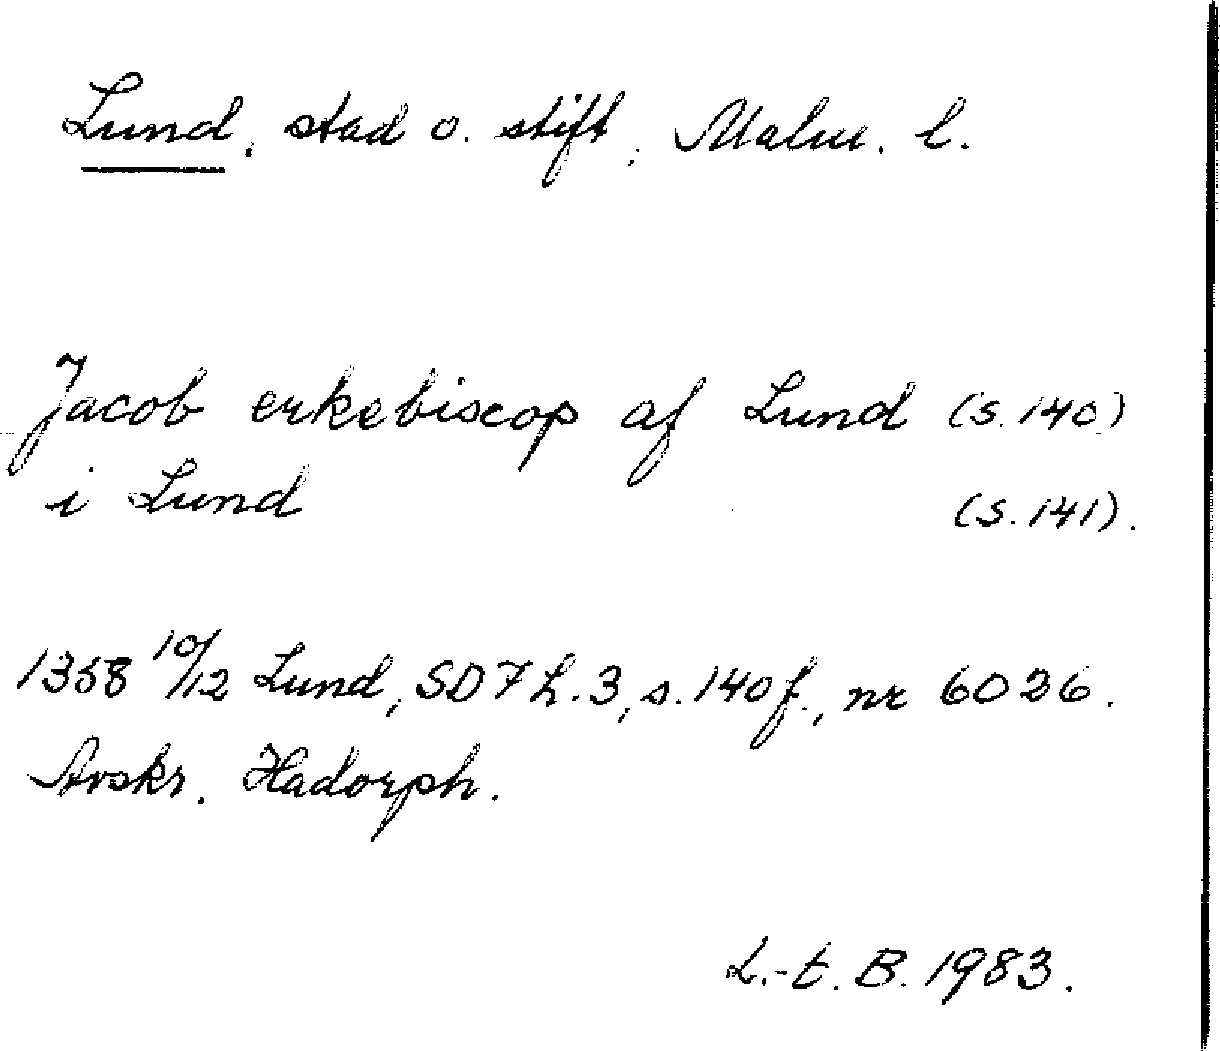 Lund, stad o. stift, Malm. l.
Jacob erkebiscop af Lund (s. 140)
i Lund (s. 141).
1358 10/12 Lund, SD 7 h. 3, s. 140 f., nr 6026.
Avskr. Hadorph.
L.-t. B. 1983.